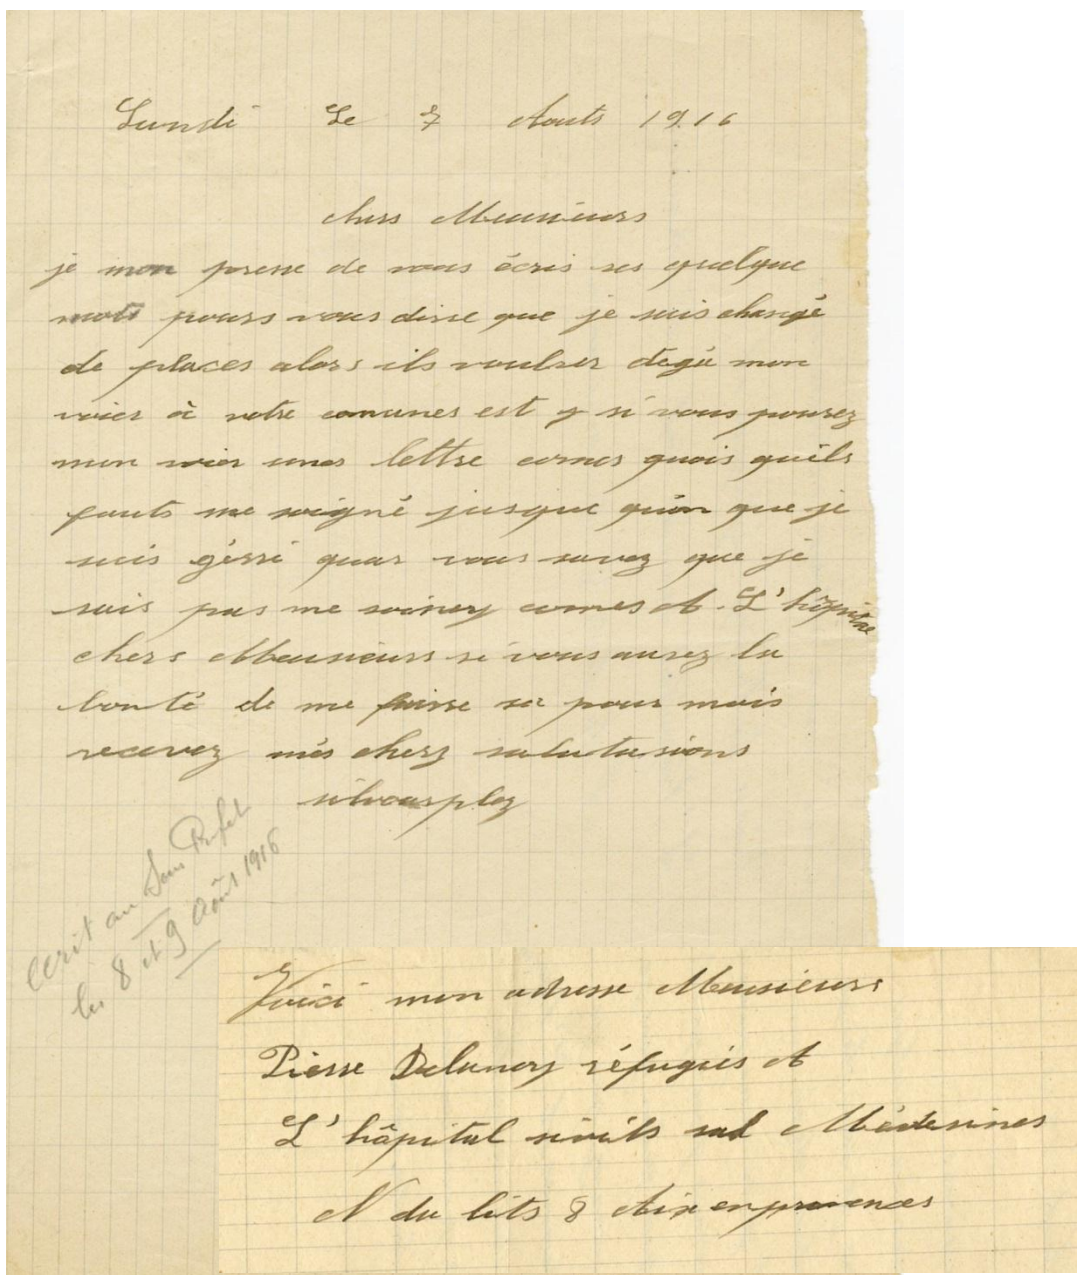 Lundi Le 7 Aouts 1916
chers Meusieurs
je mon presse de vous écris ses quelque
mots pours vous disse que je suis changé
de places alors ils voulser dégà mon
voier à votre comunes est y si vous pourez
mon voier unes lettre comes quois quèils
fauts me soigné jusque quòn que je
suis gérri quar vous savez que je
suis pas me soiner comes A. L'hôpital
chers Meusieurs si vous aurez la
bonté de me faire sa pour mois
recevez més cherz salutasions
silvousplez
écrit au Sous Préfet
les 8 et 9 Août 1916
Voici mon adresse Meusieurs
Pierre Delunoy réfugiés A
L'hôpital sivils sal Médesines
N du lits 8 Aix en provences